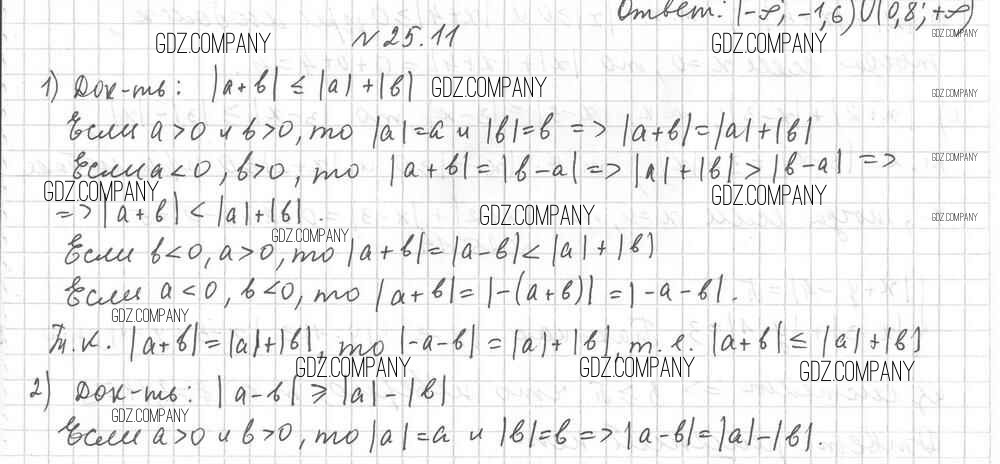 Ответ: (-∞; -1,6)∪(0,8; +∞)
GDZ.COMPANY № 25.11 GDZ.COMPANY GDZ.COMPANY
1) Док-ть: |a+b| ≤ |a|+|b| GDZ.COMPANY GDZ.COMPANY
Если a>0 и b>0, то |a|=a и |b|=b => |a+b|=|a|+|b|
Если a<0, b>0, то |a+b|=|b-a| => |a|+|b|>|b-a| => GDZ.COMPANY
GDZ.COMPANY GDZ.COMPANY
=> |a+b|<|a|+|b|. GDZ.COMPANY GDZ.COMPANY
GDZ.COMPANY
Если b<0, a>0, то |a+b|=|a-b|<|a|+|b|
Если a<0, b<0, то |a+b|=|-(a+b)|=|-a-b|.
GDZ.COMPANY
Т.к. |a+b|=|a|+|b|, то |-a-b|=|a|+|b|, т.е. |a+b|≤|a|+|b|
GDZ.COMPANY GDZ.COMPANY GDZ.COMPANY
2) Док-ть: |a-b| ≥ |a|-|b|
GDZ.COMPANY
Если a>0 и b>0, то |a|=a и |b|=b => |a-b|=|a|-|b|.